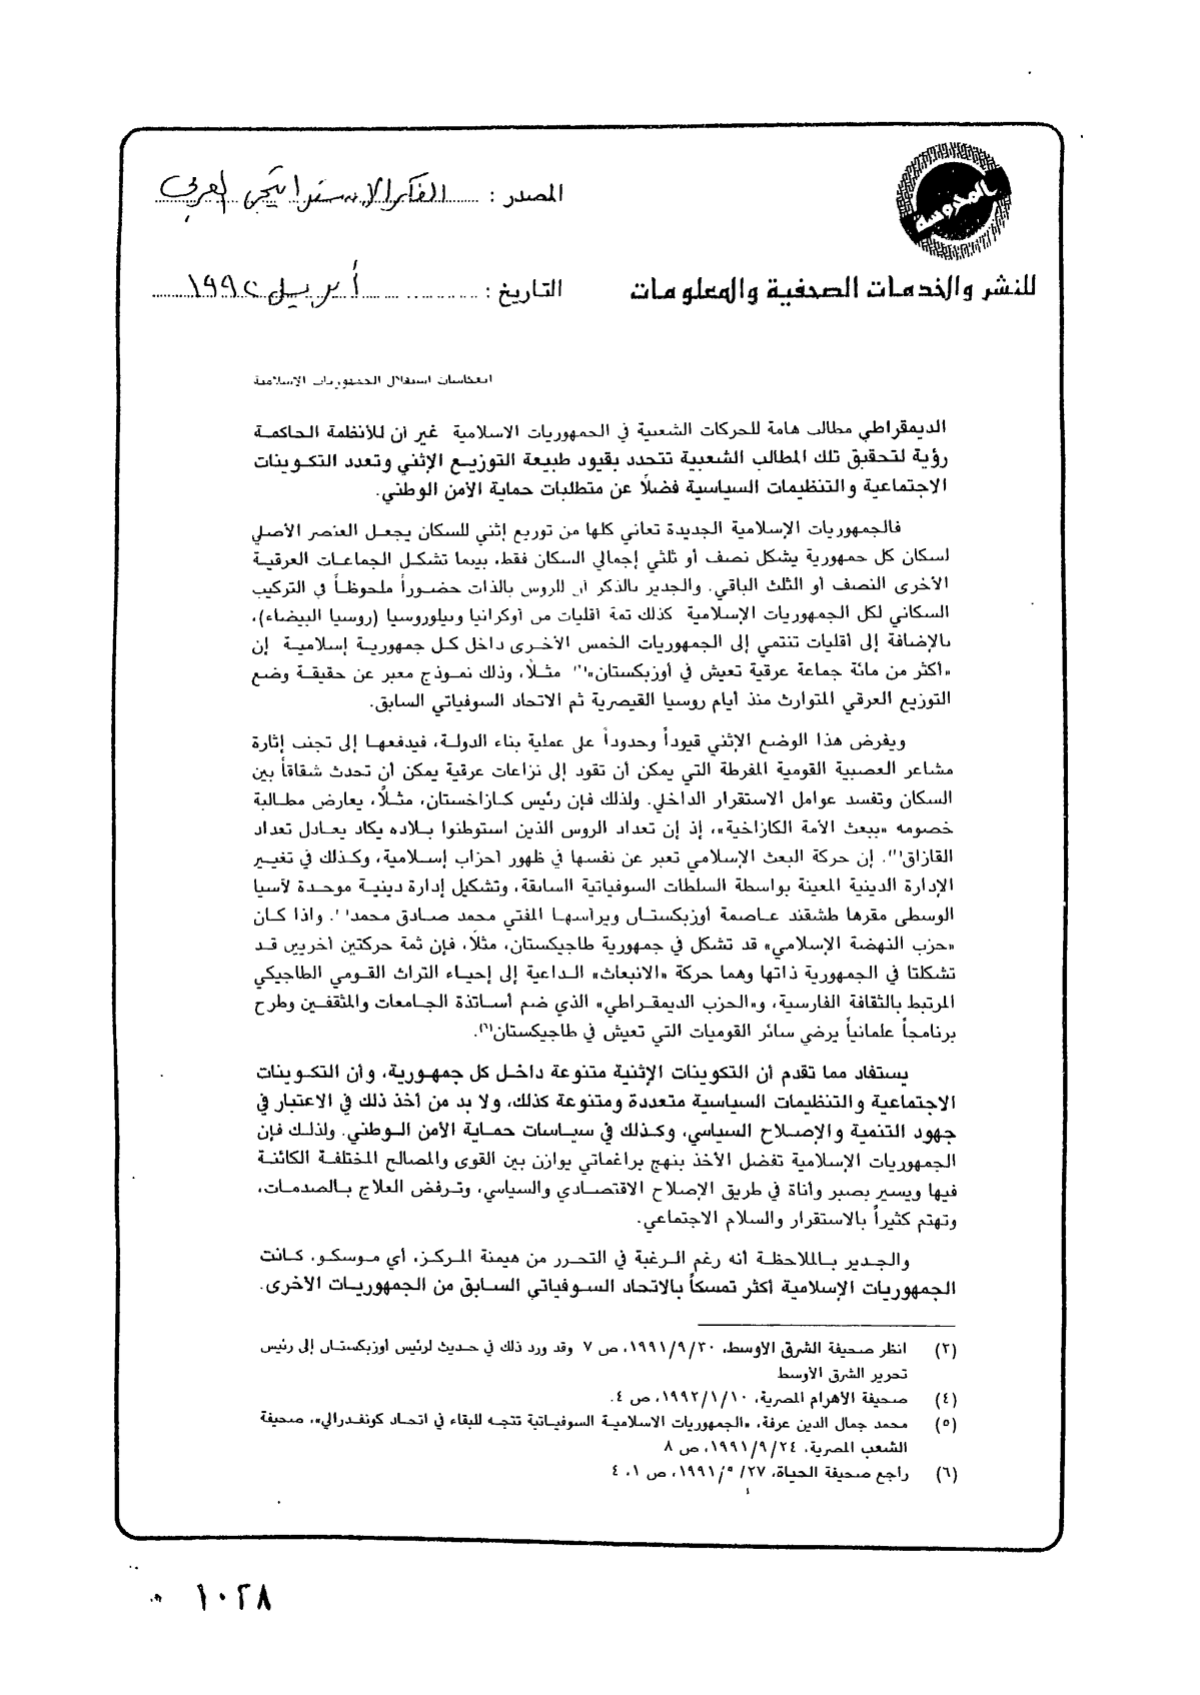 بالمحروسة
المصدر : الفكر الاستراتيجي العربي
للنشر والخدمات الصحفية والمعلومات
التاريخ : أبريل ١٩٩٢
انعكاسات استقلال الجمهوريات الإسلامية
الديمقراطي مطالب هامة للحركات الشعبية في الجمهوريات الاسلامية غير أن للأنظمة الحاكمة
رؤية لتحقيق تلك المطالب الشعبية تتحدد بقيود طبيعة التوزيع الإثني وتعدد التكوينات
الاجتماعية والتنظيمات السياسية فضلًا عن متطلبات حماية الأمن الوطني.
فالجمهوريات الإسلامية الجديدة تعاني كلها من توزيع إثني للسكان يجعل العنصر الأصلي
لسكان كل جمهورية يشكل نصف أو ثلثي إجمالي السكان فقط، بينما تشكل الجماعات العرقية
الأخرى النصف أو الثلث الباقي. والجدير بالذكر أن للروس بالذات حضوراً ملحوظاً في التركيب
السكاني لكل الجمهوريات الإسلامية كذلك ثمة أقليات من أوكرانيا وبيلوروسيا (روسيا البيضاء)،
بالإضافة إلى أقليات تنتمي إلى الجمهوريات الخمس الأخرى داخل كل جمهورية إسلامية إن
«أكثر من مائة جماعة عرقية تعيش في أوزبكستان» مثلًا، وذلك نموذج معبر عن حقيقة وضع
التوزيع العرقي المتوارث منذ أيام روسيا القيصرية ثم الاتحاد السوفياتي السابق.
ويفرض هذا الوضع الإثني قيوداً وحدوداً على عملية بناء الدولة، فيدفعها إلى تجنب إثارة
مشاعر العصبية القومية المفرطة التي يمكن أن تقود إلى نزاعات عرقية يمكن أن تحدث شقاقاً بين
السكان وتفسد عوامل الاستقرار الداخلي. ولذلك فإن رئيس كازاخستان، مثلًا، يعارض مطالبة
خصومه «ببعث الأمة الكازاخية»، إذ إن تعداد الروس الذين استوطنوا بلاده يكاد يعادل تعداد
القازاق. إن حركة البعث الإسلامي تعبر عن نفسها في ظهور أحزاب إسلامية، وكذلك في تغيير
الإدارة الدينية المعينة بواسطة السلطات السوفياتية السابقة، وتشكيل إدارة دينية موحدة لآسيا
الوسطى مقرها طشقند عاصمة أوزبكستان ويرأسها المفتي محمد صادق محمد. واذا كان
«حزب النهضة الإسلامي» قد تشكل في جمهورية طاجيكستان، مثلًا، فإن ثمة حركتين أخريين قد
تشكلتا في الجمهورية ذاتها وهما حركة «الانبعاث» الداعية إلى إحياء التراث القومي الطاجيكي
المرتبط بالثقافة الفارسية، و«الحزب الديمقراطي» الذي ضم أساتذة الجامعات والمثقفين وطرح
برنامجاً علمانياً يرضي سائر القوميات التي تعيش في طاجيكستان(٦).
يستفاد مما تقدم أن التكوينات الإثنية متنوعة داخل كل جمهورية، وأن التكوينات
الاجتماعية والتنظيمات السياسية متعددة ومتنوعة كذلك، ولا بد من أخذ ذلك في الاعتبار في
جهود التنمية والإصلاح السياسي، وكذلك في سياسات حماية الأمن الوطني. ولذلك فإن
الجمهوريات الإسلامية تفضل الأخذ بنهج براغماتي يوازن بين القوى والمصالح المختلفة الكائنة
فيها ويسير بصبر وأناة في طريق الإصلاح الاقتصادي والسياسي، وترفض العلاج بالصدمات،
وتهتم كثيراً بالاستقرار والسلام الاجتماعي.
والجدير بالملاحظة أنه رغم الرغبة في التحرر من هيمنة المركز، أي موسكو، كانت
الجمهوريات الإسلامية أكثر تمسكاً بالاتحاد السوفياتي السابق من الجمهوريات الأخرى.
(٣) انظر صحيفة الشرق الأوسط، ١٩٩١/٩/٣٠، ص ٧ وقد ورد ذلك في حديث لرئيس أوزبكستان إلى رئيس
تحرير الشرق الأوسط
(٤) صحيفة الأهرام المصرية، ١٩٩٢/١/١٠، ص ٤.
(٥) محمد جمال الدين عرفة، «الجمهوريات الاسلامية السوفياتية تتجه للبقاء في اتحاد كونفدرالي»، صحيفة
الشعب المصرية، ١٩٩١/٩/٢٤، ص ٨
(٦) راجع صحيفة الحياة، ١٩٩١/٥/٢٧، ص ١، ٤
١٠٢٨